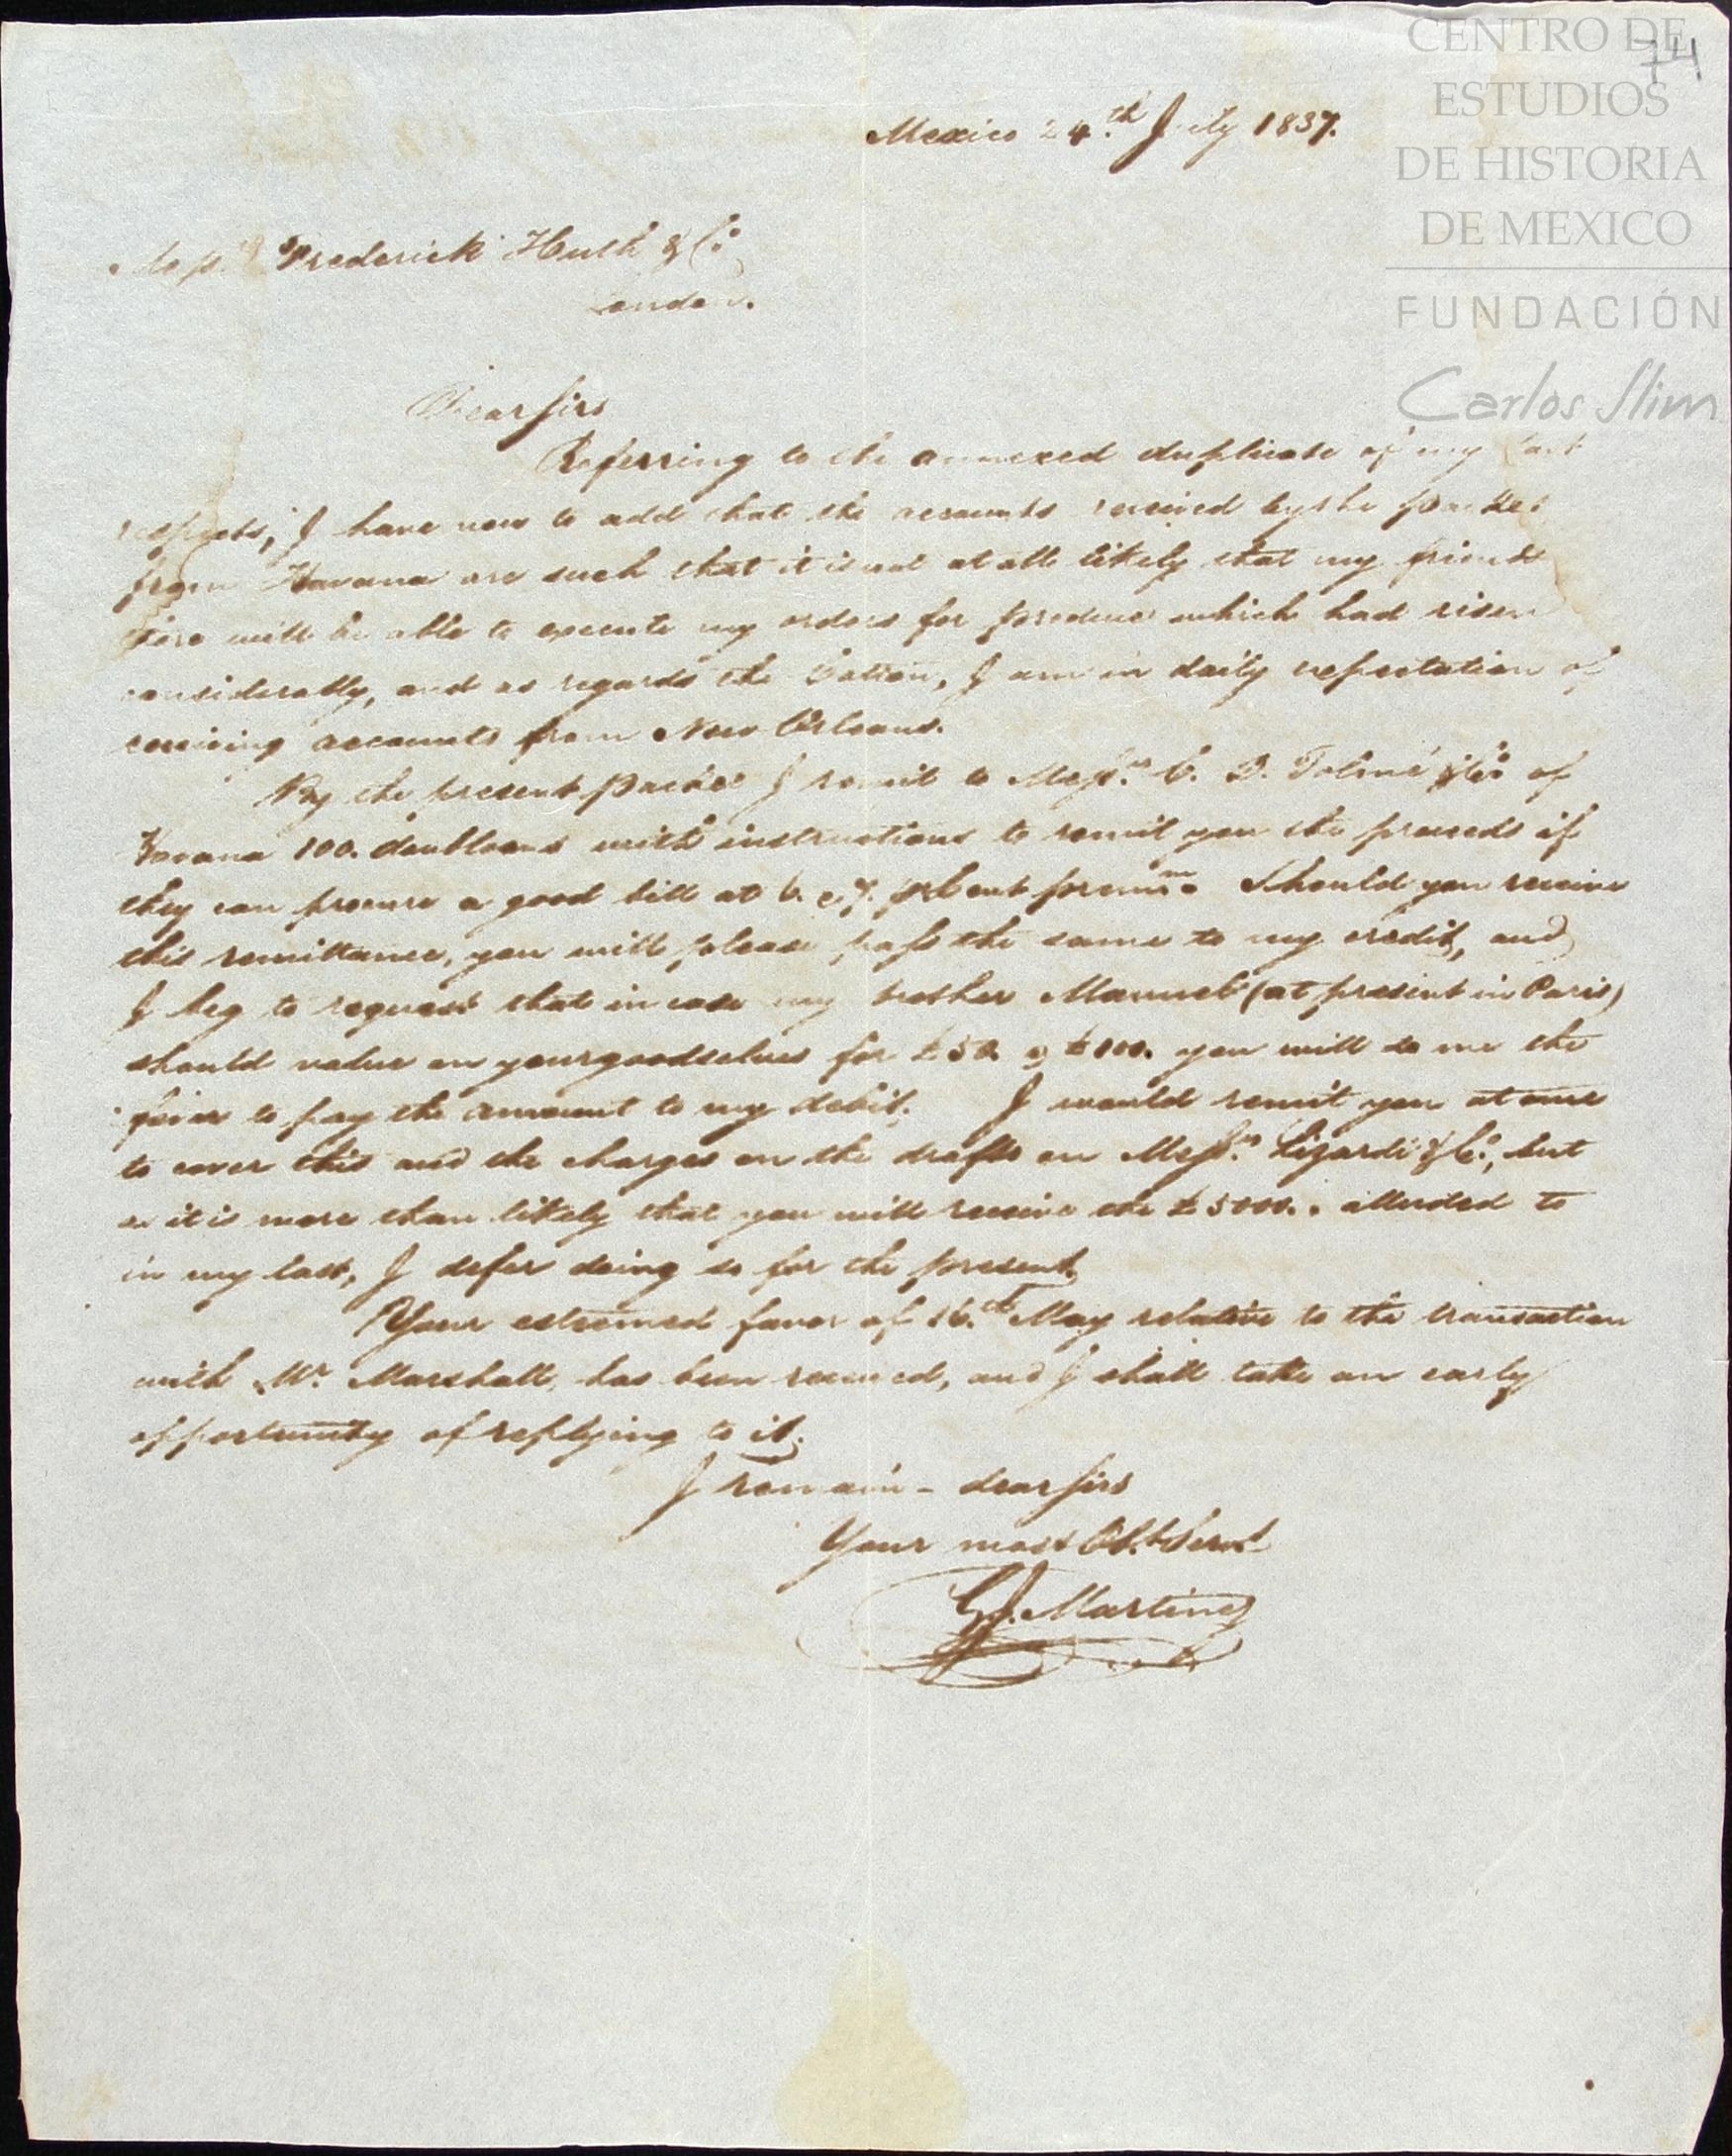 CENTRO DE
ESTUDIOS
DE HISTORIA
DE MEXICO
FUNDACIÓN
Carlos Slim
74
Mexico 24.th July 1837.
Mess.rs Frederick Huth & Co.
London.
Dear Sirs
Referring to the annexed duplicate of my last
respects, I have now to add that the accounts received by the packet
from Havana are such that it is not at all likely that my friends
there will be able to execute my orders for produce which had risen
considerably, and as regards the Cotton, I am in daily expectation of
receiving accounts from New Orleans.
By the present packet I remit to Mess.rs C. D. Tolmé & Co. of
Havana 100. doubloons with instructions to remit you the proceeds if
they can procure a good bill at 6. @ 7. p Cent premm. Should you receive
this remittance, you will please pass the same to my credit, and
I beg to request that in case my brother Manuel (at present in Paris)
should value on yourgoodselves for £50. @ £100. you will do me the
favor to pay the amount to my debit. I would remit you at once
to cover this and the charges on the drafts on Mess.rs Lizardi & Co., but
as it is more than likely that you will receive the £5000.. alluded to
in my last, I defer doing so for the present.
Your esteemed favor of 16.th May relative to the transaction
with Mr. Marshall, has been received, and I shall take an early
opportunity of replying to it.
I remain - dear Sirs
Your most Obt. Servt.
G. J. Martinez